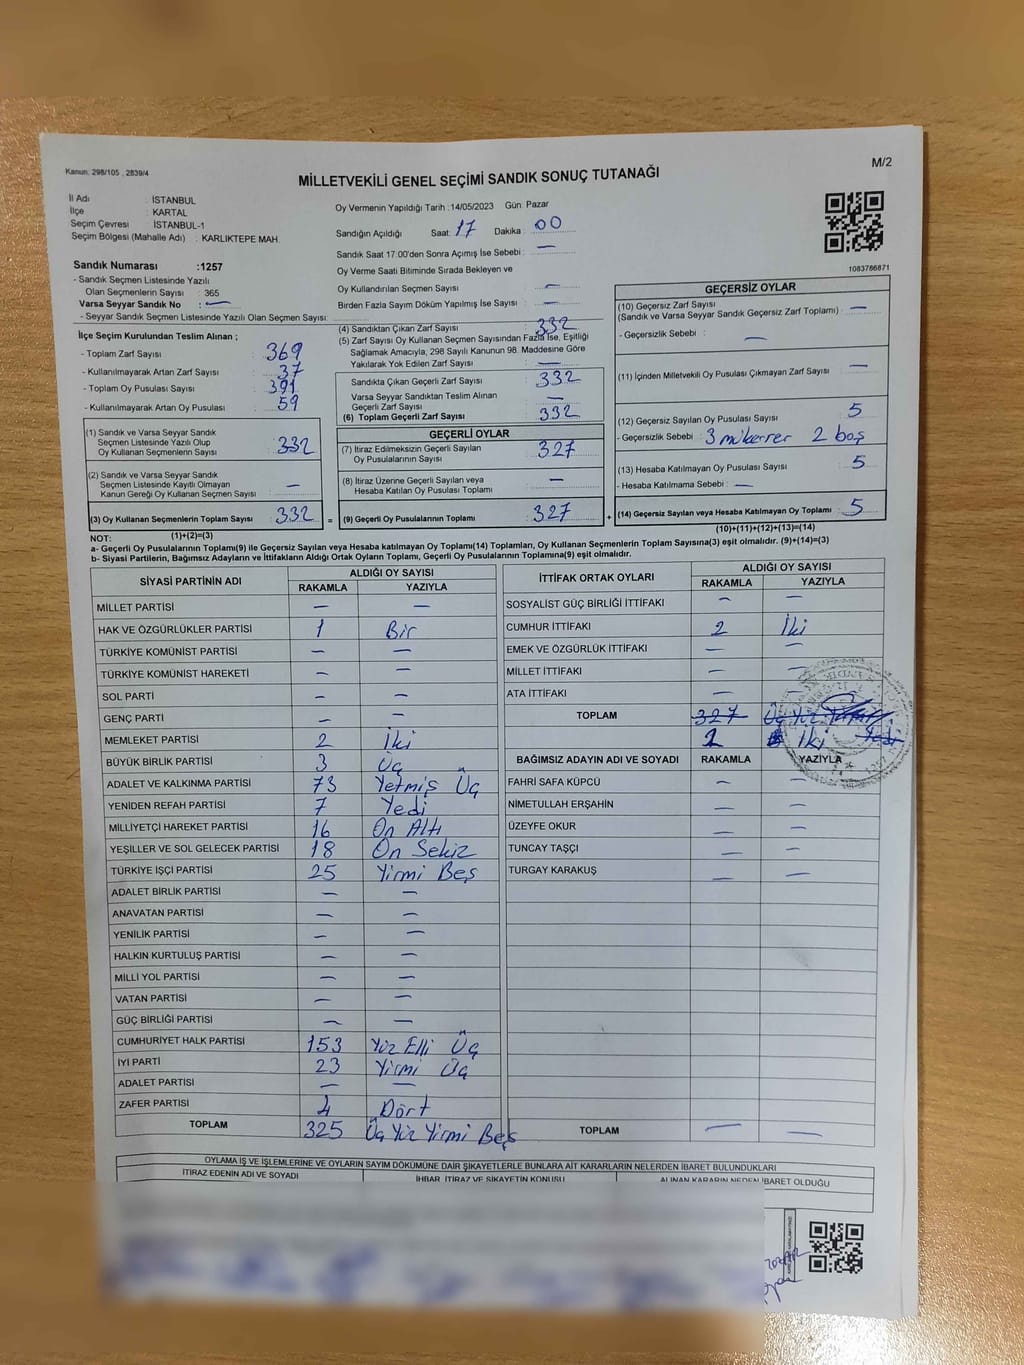 Kanun: 298/105 , 2839/4
M/2
MİLLETVEKİLİ GENEL SEÇİMİ SANDIK SONUÇ TUTANAĞI
İl Adı : İSTANBUL
İlçe : KARTAL
Seçim Çevresi : İSTANBUL-1
Seçim Bölgesi (Mahalle Adı) : KARLIKTEPE MAH.
Sandık Numarası :1257
- Sandık Seçmen Listesinde Yazılı
Olan Seçmenlerin Sayısı : 365
Varsa Seyyar Sandık No : —
- Seyyar Sandık Seçmen Listesinde Yazılı Olan Seçmen Sayısı:
Oy Vermenin Yapıldığı Tarih :14/05/2023 Gün: Pazar
Sandığın Açıldığı Saat: 17 Dakika : 00
Sandık Saat 17:00'den Sonra Açımış İse Sebebi : —
Oy Verme Saati Bitiminde Sırada Bekleyen ve
Oy Kullandırılan Seçmen Sayısı : —
Birden Fazla Sayım Döküm Yapılmış İse Sayısı : —
1083766871
İlçe Seçim Kurulundan Teslim Alınan ;
- Toplam Zarf Sayısı : 369
- Kullanılmayarak Artan Zarf Sayısı : 37
- Toplam Oy Pusulası Sayısı : 391
- Kullanılmayarak Artan Oy Pusulası : 59
(1) Sandık ve Varsa Seyyar Sandık
Seçmen Listesinde Yazılı Olup
Oy Kullanan Seçmenlerin Sayısı : 332
(2) Sandık ve Varsa Seyyar Sandık
Seçmen Listesinde Kayıtlı Olmayan
Kanun Gereği Oy Kullanan Seçmen Sayısı : —
(3) Oy Kullanan Seçmenlerin Toplam Sayısı : 332
(1)+(2)=(3)
(4) Sandıktan Çıkan Zarf Sayısı : 332
(5) Zarf Sayısı Oy Kullanan Seçmen Sayısından Fazla İse, Eşitliği
Sağlamak Amacıyla, 298 Sayılı Kanunun 98. Maddesine Göre
Yakılarak Yok Edilen Zarf Sayısı : —
Sandıkta Çıkan Geçerli Zarf Sayısı : 332
Varsa Seyyar Sandıktan Teslim Alınan
Geçerli Zarf Sayısı : —
(6) Toplam Geçerli Zarf Sayısı : 332
GEÇERLİ OYLAR
(7) İtiraz Edilmeksizin Geçerli Sayılan
Oy Pusulalarının Sayısı : 327
(8) İtiraz Üzerine Geçerli Sayılan veya
Hesaba Katılan Oy Pusulası Toplamı : —
= (9) Geçerli Oy Pusulalarının Toplamı : 327 +
GEÇERSİZ OYLAR
(10) Geçersiz Zarf Sayısı
(Sandık ve Varsa Seyyar Sandık Geçersiz Zarf Toplamı) : —
- Geçersizlik Sebebi : —
(11) İçinden Milletvekili Oy Pusulası Çıkmayan Zarf Sayısı : —
(12) Geçersiz Sayılan Oy Pusulası Sayısı : 5
- Geçersizlik Sebebi : 3 mükerrer 2 boş
(13) Hesaba Katılmayan Oy Pusulası Sayısı : 5
- Hesaba Katılmama Sebebi : —
(14) Geçersiz Sayılan veya Hesaba Katılmayan Oy Toplamı : 5
(10)+(11)+(12)+(13)=(14)
NOT:
a- Geçerli Oy Pusulalarının Toplamı(9) ile Geçersiz Sayılan veya Hesaba katılmayan Oy Toplamı(14) Toplamları, Oy Kullanan Seçmenlerin Toplam Sayısına(3) eşit olmalıdır. (9)+(14)=(3)
b- Siyasi Partilerin, Bağımsız Adayların ve İttifakların Aldığı Ortak Oyların Toplamı, Geçerli Oy Pusulalarının Toplamına(9) eşit olmalıdır.
SİYASİ PARTİNİN ADI ALDIĞI OY SAYISI
RAKAMLA YAZIYLA
MİLLET PARTİSİ — —
HAK VE ÖZGÜRLÜKLER PARTİSİ 1 Bir
TÜRKİYE KOMÜNİST PARTİSİ — —
TÜRKİYE KOMÜNİST HAREKETİ — —
SOL PARTİ — —
GENÇ PARTİ — —
MEMLEKET PARTİSİ 2 İki
BÜYÜK BİRLİK PARTİSİ 3 Üç
ADALET VE KALKINMA PARTİSİ 73 Yetmiş Üç
YENİDEN REFAH PARTİSİ 7 Yedi
MİLLİYETÇİ HAREKET PARTİSİ 16 On Altı
YEŞİLLER VE SOL GELECEK PARTİSİ 18 On Sekiz
TÜRKİYE İŞÇİ PARTİSİ 25 Yirmi Beş
ADALET BİRLİK PARTİSİ — —
ANAVATAN PARTİSİ — —
YENİLİK PARTİSİ — —
HALKIN KURTULUŞ PARTİSİ — —
MİLLİ YOL PARTİSİ — —
VATAN PARTİSİ — —
GÜÇ BİRLİĞİ PARTİSİ — —
CUMHURİYET HALK PARTİSİ 153 Yüz Elli Üç
İYİ PARTİ 23 Yirmi Üç
ADALET PARTİSİ — —
ZAFER PARTİSİ 4 Dört
TOPLAM 325 Üç Yüz Yirmi Beş
İTTİFAK ORTAK OYLARI ALDIĞI OY SAYISI
RAKAMLA YAZIYLA
SOSYALİST GÜÇ BİRLİĞİ İTTİFAKI — —
CUMHUR İTTİFAKI 2 İki
EMEK VE ÖZGÜRLÜK İTTİFAKI — —
MİLLET İTTİFAKI — —
ATA İTTİFAKI — —
TOPLAM 327 Üç Yüz Yedi
2 İki
BAĞIMSIZ ADAYIN ADI VE SOYADI RAKAMLA YAZIYLA
FAHRİ SAFA KÜPCÜ — —
NİMETULLAH ERŞAHİN — —
ÜZEYFE OKUR — —
TUNCAY TAŞÇI — —
TURGAY KARAKUŞ — —
TOPLAM — —
OYLAMA İŞ VE İŞLEMLERİNE VE OYLARIN SAYIM DÖKÜMÜNE DAİR ŞİKAYETLERLE BUNLARA AİT KARARLARIN NELERDEN İBARET BULUNDUKLARI
İTİRAZ EDENİN ADI VE SOYADI İHBAR, İTİRAZ VE ŞİKAYETİN KONUSU ALINAN KARARIN NEDEN İBARET OLDUĞU